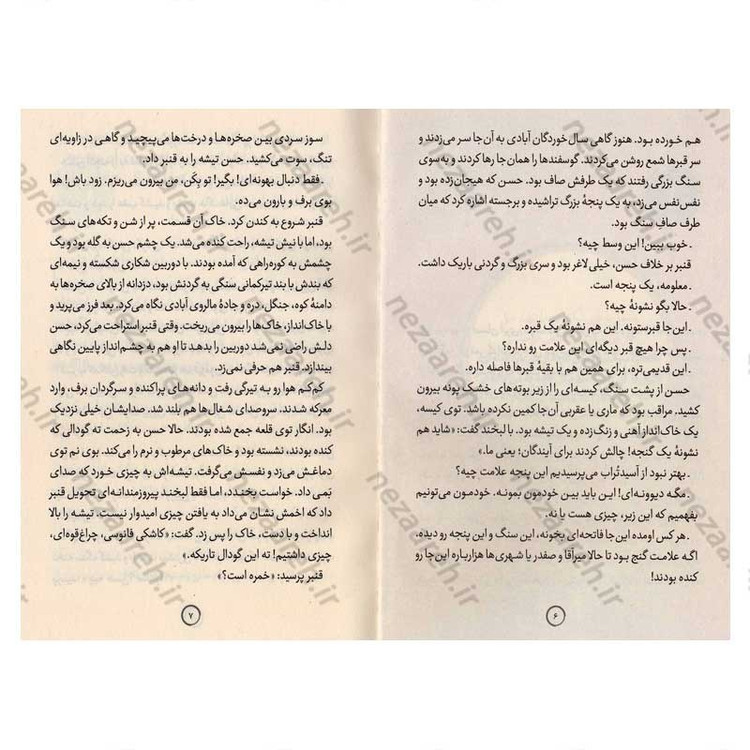 هم خورده بود. هنوز گاهی سال خوردگان آبادی به آن‌جا سر می‌زدند و
سر قبرها شمع روشن می‌کردند. گوسفندها را همان جا رها کردند و به‌سوی
سنگ بزرگی رفتند که یک طرفش صاف بود. حسن که هیجان‌زده بود و
نفس‌نفس می‌زد، به یک پنجهٔ بزرگ تراشیده و برجسته اشاره کرد که میان
طرف صافِ سنگ بود.
ـ خوب ببین! این وسط چیه؟
قنبر بر خلاف حسن، خیلی لاغر بود و سری بزرگ و گردنی باریک داشت.
ـ معلومه، یک پنجه است.
ـ حالا بگو نشونهٔ چیه؟
ـ این‌جا قبرستونه. این هم نشونهٔ یک قبره.
ـ پس چرا هیچ قبر دیگه‌ای این علامت رو نداره؟
ـ این قدیمی‌تره، برای همین هم با بقیهٔ قبرها فاصله داره.
حسن از پشت سنگ، کیسه‌ای را از زیر بوته‌های خشک پونه بیرون
کشید. مراقب بود که ماری یا عقربی آن‌جا کمین نکرده باشد. توی کیسه،
یک خاک‌انداز آهنی و زنگ‌زده و یک تیشه بود. با لبخند گفت: «شاید هم
نشونهٔ یک گنجه! چالش کردند برای آیندگان؛ یعنی ما.»
ـ بهتر نبود از آسیدتُراب می‌پرسیدیم این پنجه علامت چیه؟
ـ مگه دیوونه‌ای! این باید بین خودمون بمونه. خودمون می‌تونیم
بفهمیم که این زیر، چیزی هست یا نه.
ـ هر کس اومده این‌جا فاتحه‌ای بخونه، این سنگ و این پنجه رو دیده،
اگه علامت گنج بود تا حالا میرآقا و صفدر یا شهری‌ها هزارباره این‌جا رو
کنده بودند!
۶
سوز سردی بین صخره‌ها و درخت‌ها می‌پیچید و گاهی در زاویه‌ای
تنگ، سوت می‌کشید. حسن تیشه را به قنبر داد.
ـ فقط دنبال بهونه‌ای! بگیر! تو بِکَن، من بیرون می‌ریزم. زود باش! هوا
بوی برف و بارون می‌ده.
قنبر شروع به کندن کرد. خاک آن قسمت، پر از شن و تکه‌های سنگ
بود، اما با نیش تیشه، راحت کنده می‌شد. یک چشم حسن به گله بود و یک
چشمش به کوره‌راهی که آمده بودند. با دوربین شکاری شکسته و نیمه‌ای
که بندش با بند تیرکمانی سنگی به گردنش بود، دزدانه از بالای صخره‌ها به
دامنهٔ کوه، جنگل، دره و جادهٔ مالروی آبادی نگاه می‌کرد. بعد فرز می‌پرید و
با خاک‌انداز، خاک‌ها را بیرون می‌ریخت. وقتی قنبر استراحت می‌کرد، حسن
دلش راضی نمی‌شد دوربین را بدهد تا او هم به چشم‌انداز پایین نگاهی
بیندازد. قنبر هم حرفی نمی‌زد.
کم‌کم هوا رو به تیرگی رفت و دانه‌های پراکنده و سرگردان برف، وارد
معرکه شدند. سروصدای شغال‌ها هم بلند شد. صدایشان خیلی نزدیک
بود. انگار توی قلعه جمع شده بودند. حالا حسن به زحمت ته گودالی که
کنده بودند، نشسته بود و خاک‌های مرطوب و نرم را می‌کند. بوی نم توی
دماغش می‌زد و نفسش می‌گرفت. تیشه‌اش به چیزی خورد که صدای
بَمی داد. خواست بخندد، اما فقط لبخند پیروزمندانه‌ای تحویل قنبر
داد که اخمش نشان می‌داد به یافتن چیزی امیدوار نیست. تیشه را بالا
انداخت و با دست، خاک را پس زد. گفت: «کاشکی فانوسی، چراغ‌قوه‌ای،
چیزی داشتیم! ته این گودال تاریکه.»
قنبر پرسید: «خمره است؟»
۷
nezaareh.ir